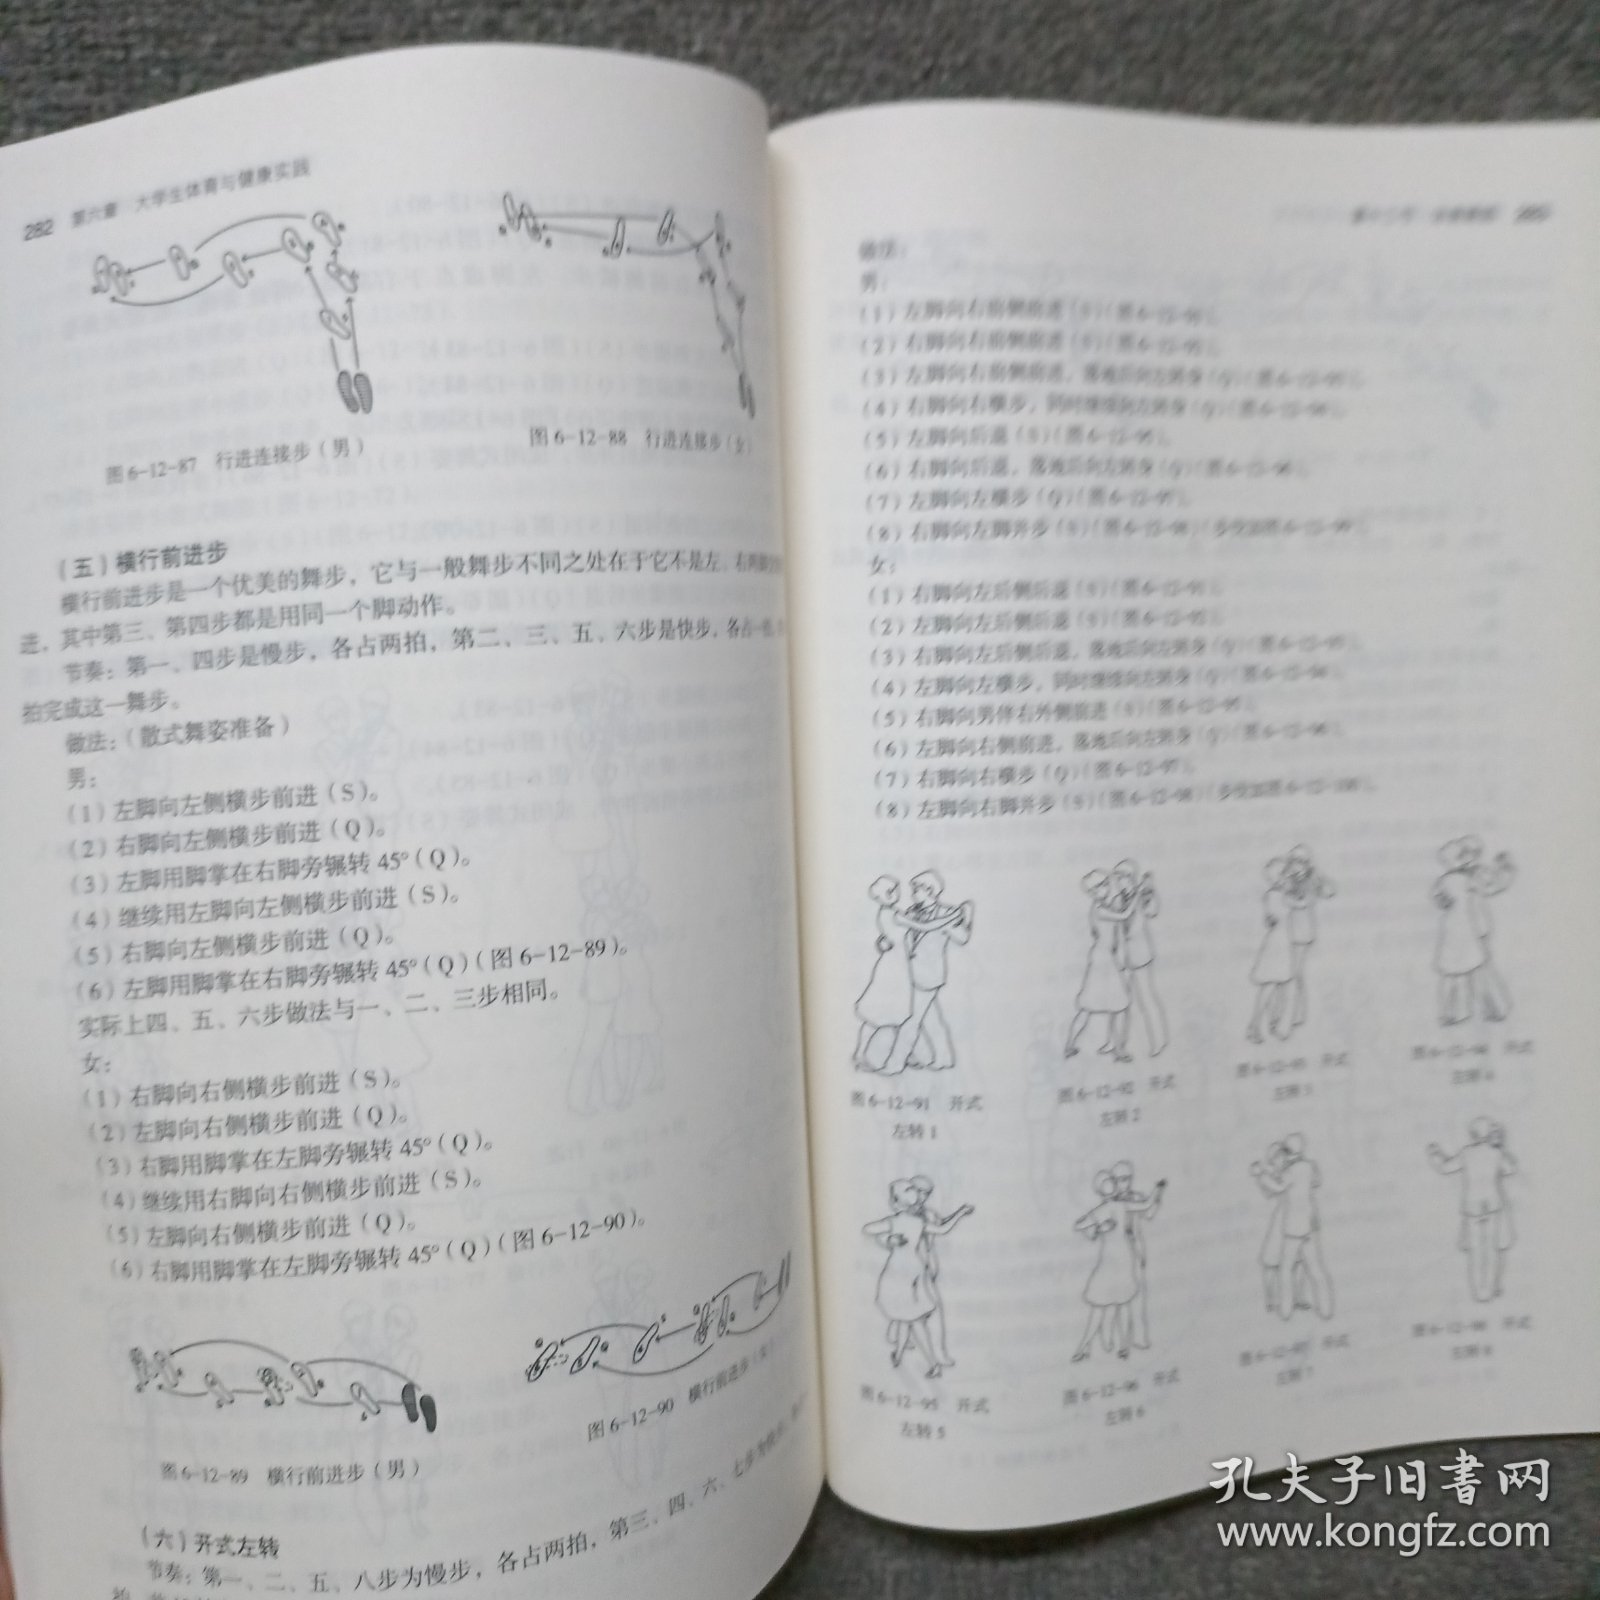 282 第六章 大学生体育与健康实践
图6-12-87 行进连接步（男）
图6-12-88 行进连接步（女）
（五）横行前进步
横行前进步是一个优美的舞步，它与一般舞步不同之处在于它不是左、右两脚
进，其中第三、第四步都是用同一个脚动作。
节奏：第一、四步是慢步，各占两拍，第二、三、五、六步是快步，各占一拍，
拍完成这一舞步。
做法：（散式舞姿准备）
男：
（1）左脚向左侧横步前进（S）。
（2）右脚向左侧横步前进（Q）。
（3）左脚用脚掌在右脚旁辗转 45°（Q）。
（4）继续用左脚向左侧横步前进（S）。
（5）右脚向左侧横步前进（Q）。
（6）左脚用脚掌在右脚旁辗转 45°（Q）（图6-12-89）。
实际上四、五、六步做法与一、二、三步相同。
女：
（1）右脚向右侧横步前进（S）。
（2）左脚向右侧横步前进（Q）。
（3）右脚用脚掌在左脚旁辗转 45°（Q）。
（4）继续用右脚向右侧横步前进（S）。
（5）左脚向右侧横步前进（Q）。
（6）右脚用脚掌在左脚旁辗转 45°（Q）（图6-12-90）。
图6-12-89 横行前进步（男）
图6-12-90 横行前进步（女）
（六）开式左转
节奏：第一、二、五、八步为慢步，各占两拍，第三、四、六、七步为快
做法：
男：
（1）左脚向右前侧前进（S）（图6-12-91）。
（2）右脚向右前侧前进（S）（图6-12-92）。
（3）左脚向右前侧前进，落地后向左转身（Q）（图6-12-93）。
（4）右脚向右横步，同时继续向左转身（Q）（图6-12-94）。
（5）左脚向后退（S）（图6-12-95）。
（6）右脚向后退，落地后向左转身（Q）（图6-12-96）。
（7）左脚向左横步（Q）（图6-12-97）。
（8）右脚向左脚并步（S）（图6-12-98）
女：
（1）右脚向左后侧后退（S）（图6-12-91）。
（2）左脚向左后侧后退（S）（图6-12-92）。
（3）右脚向左后侧后退，落地后向左转身（Q）（图6-12-93）。
（4）左脚向左横步，同时继续向左转身（Q）（图6-12-94）。
（5）右脚向男伴右外侧前进（S）（图6-12-95）。
（6）左脚向右侧前进，落地后向左转身（Q）（图6-12-96）。
（7）右脚向右横步（Q）（图6-12-97）。
（8）左脚向右脚并步（S）（图6-12-98）
图6-12-91 开式
左转 1
图6-12-92 开式
左转 2
图6-12-93 开式
左转 3
图6-12-94 开式
左转 4
图6-12-95 开式
左转 5
图6-12-96 开式
左转 6
图6-12-97 开式
左转 7
图6-12-98 开式
左转 8
孔夫子旧书网
www.kongfz.com